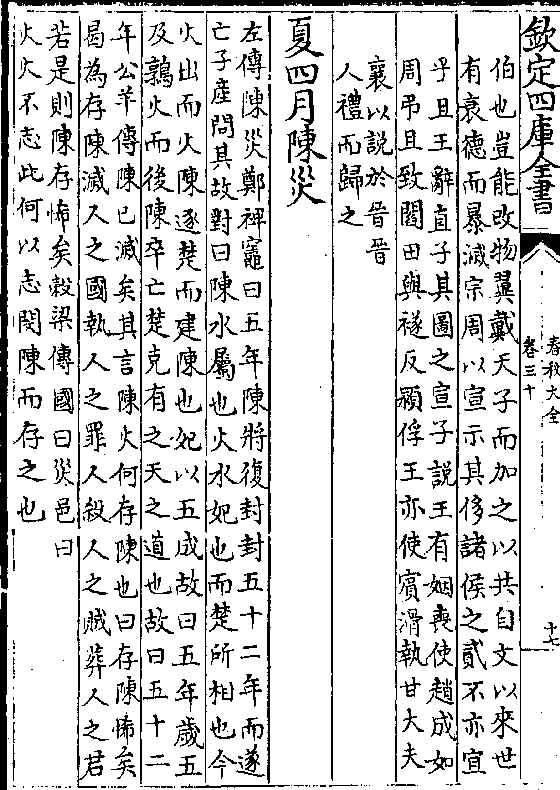 欽定四庫全書
春秋大全
卷三十
十七
伯也豈能改物翼戴天子而加之以共自文以來世
有衰德而暴滅宗周以宣示其侈諸侯之貳不亦宜
乎且王辭直子其圖之宣子說王有姻喪使趙成如
周弔且致閻田與襚反潁俘王亦使賓滑執甘大夫
襄以說於晉晉
人禮而歸之
夏四月陳災
左傳陳災鄭裨竈曰五年陳將復封封五十二年而遂
亡子產問其故對曰陳水屬也火水妃也而楚所相也今
火出而火陳逐楚而建陳也妃以五成故曰五年歲五
及鶉火而後陳卒亡楚克有之天之道也故曰五十二
年公羊傳陳已滅矣其言陳火何存陳也曰存陳悕矣
曷為存陳滅人之國執人之罪人殺人之賊葬人之君
若是則陳存悕矣穀梁傳國曰災邑曰
火火不志此何以志閔陳而存之也